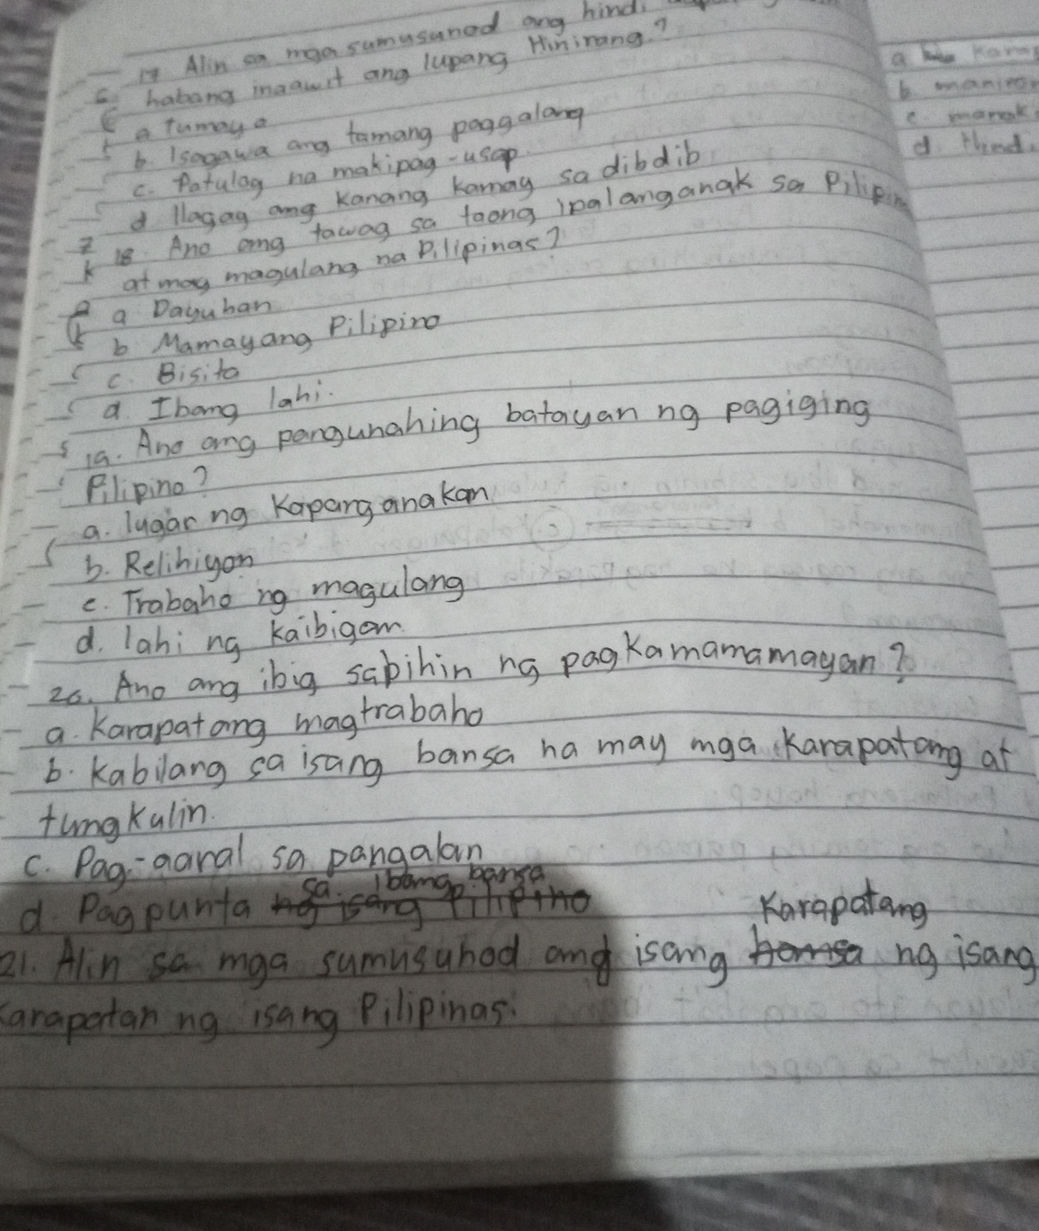 17 Alin sa mga sumusunod ang hindi
habang inaawit ang lupang Hinirang?
a Tumayo
b. Isagawa ang tamang paggalang
c. Patulog na makipag-usap
d Ilagay ang Kanang Kamay sa dibdib
18. Ano ang tawag sa taong ipalanganak sa Pilipin
at may magulang na Pilipinas?
a Dayuhan
b Mamayang Pilipino
c. Bisita
d. Ibang lahi.
19. Ano ang pangunahing batayan ng pagiging
Pilipino?
a. lugar ng Kaparganakan
b. Relihiyon
c. Trabaho ng magulang
d. lahi ng Kaibigan
20. Ano ang ibig sabihin ng pagkamamamayan?
a. Karapatang magtrabaho
b. Kabilang sa isang bansa na may mga Karapatang at
tungkulin.
c. Pag-aaral sa pangalan
d. Pagpunta sa ibang bansa
21. Alin sa mga sumusunod ang isang Karapatang ng isang
Karapatan ng isang Pilipinas.
a
b
c.
d.